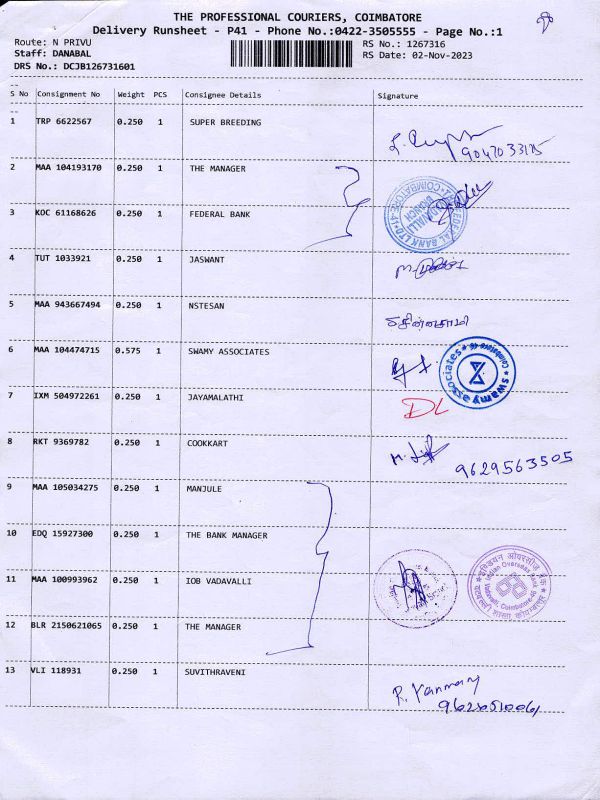 THE PROFESSIONAL COURIERS, COIMBATORE
Delivery Runsheet - P41 - Phone No.:0422-3505555 - Page No.:1
Route: N PRIVU RS No.: 1267316
Staff: DANABAL RS Date: 02-Nov-2023
DRS No.: DCJB126731601
S No Consignment No Weight PCS Consignee Details Signature
1 TRP 6622567 0.250 1 SUPER BREEDING
2 MAA 104193170 0.250 1 THE MANAGER
3 KOC 61168626 0.250 1 FEDERAL BANK
4 TUT 1033921 0.250 1 JASWANT
5 MAA 943667494 0.250 1 NSTESAN
6 MAA 104474715 0.575 1 SWAMY ASSOCIATES
swamy associates Coimbatore
7 IXM 504972261 0.250 1 JAYAMALATHI DL
8 RKT 9369782 0.250 1 COOKKART 9629563505
9 MAA 105034275 0.250 1 MANJULE
10 EDQ 15927300 0.250 1 THE BANK MANAGER
11 MAA 100993962 0.250 1 IOB VADAVALLI
इण्डियन ओवरसीज़ बैंक
Indian Overseas Bank
12 BLR 2150621065 0.250 1 THE MANAGER
13 VLI 118931 0.250 1 SUVITHRAVENI